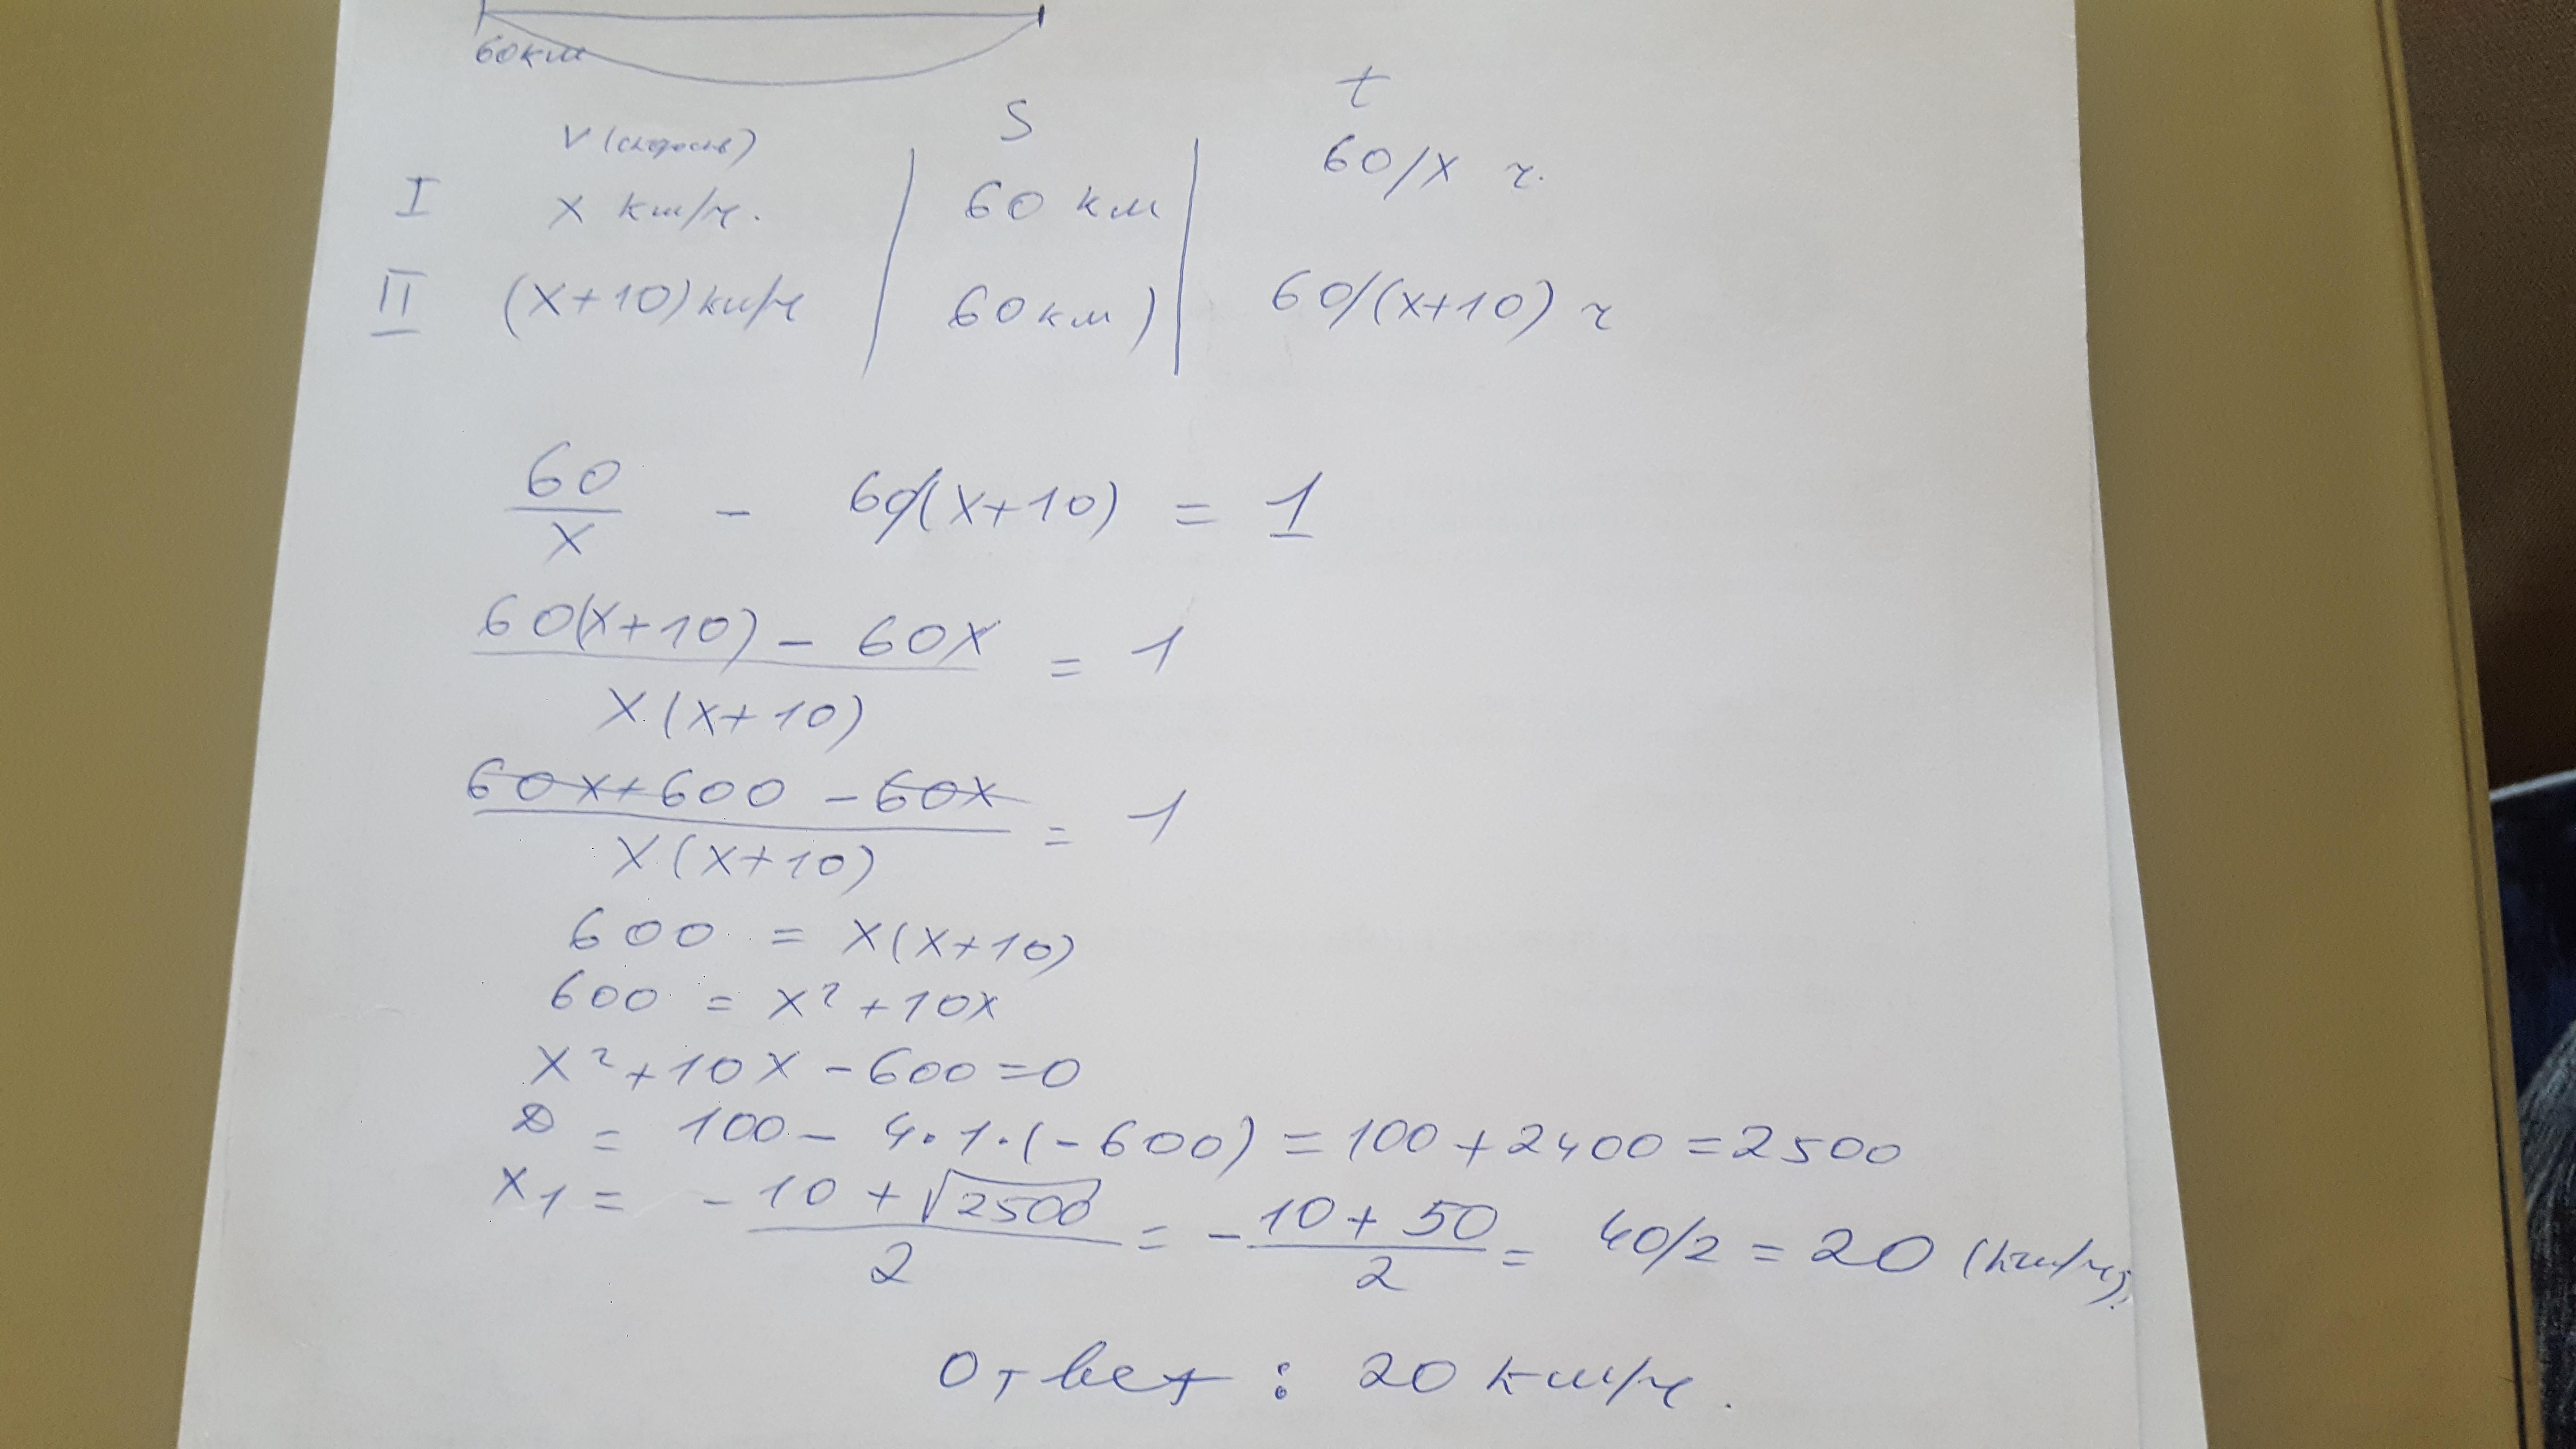 60км
V (скорость) S t
I x км/ч. 60 км 60/x ч.
II (x+10) км/ч 60 км) 60/(x+10) ч
60/x - 60/(x+10) = 1
60(x+10) - 60x / x(x+10) = 1
60x+600 - 60x / x(x+10) = 1
600 = x(x+10)
600 = x² + 10x
x² + 10x - 600 = 0
D = 100 - 4·1·(-600) = 100 + 2400 = 2500
x1 = -10 + √2500 / 2 = -10 + 50 / 2 = 40/2 = 20 (км/ч).
Ответ: 20 км/ч.